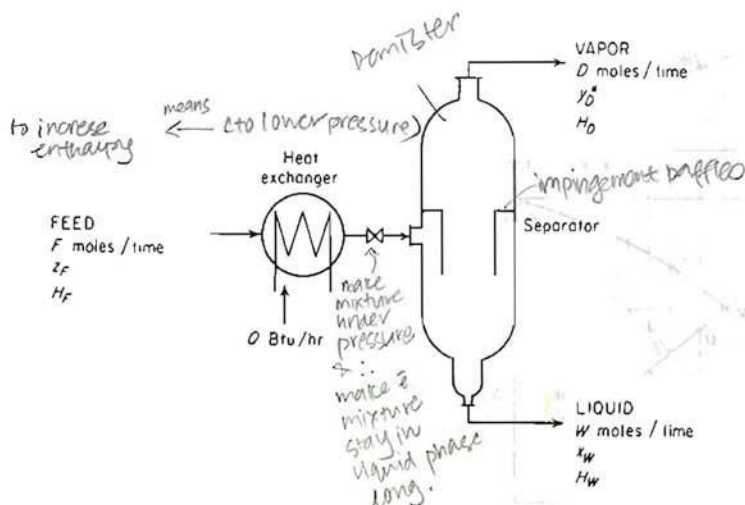 Demister
VAPOR
D moles / time
y_D*
H_D
to increse
enthalpy
means
(to lower pressure)
Heat
exchanger
impingement baffles
Separator
FEED
F moles / time
z_F
H_F
Q Btu/hr
make
mixture
under
pressure
& ∴
make ē
mixture
stay in
liquid phase
long.
LIQUID
W moles / time
x_W
H_W